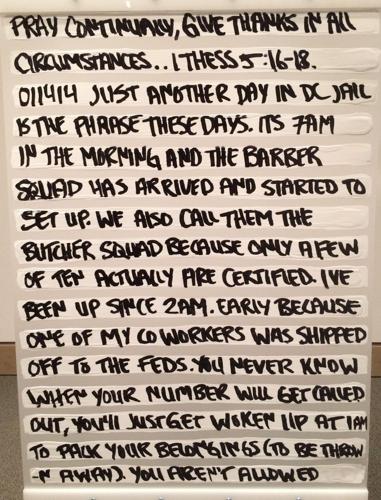 PRAY CONTINUALLY, GIVE THANKS IN ALL
CIRCUMSTANCES.. 1 THESS 5:16-18.
011414 JUST ANOTHER DAY IN DC JAIL
IS THE PHRASE THESE DAYS. ITS 7AM
IN THE MORNING AND THE BARBER
SQUAD HAS ARRIVED AND STARTED TO
SET UP. WE ALSO CALL THEM THE
BUTCHER SQUAD BECAUSE ONLY A FEW
OF TEN ACTUALLY ARE CERTIFIED. I'VE
BEEN UP SINCE 2AM. EARLY BECAUSE
ONE OF MY COWORKERS WAS SHIPPED
OFF TO THE FEDS. YOU NEVER KNOW
WHEN YOUR NUMBER WILL GET CALLED
OUT, YOU'LL JUST GET WOKEN UP AT 1AM
TO PACK YOUR BELONGINGS (TO BE THROW
-N AWAY). YOU AREN'T ALLOWED